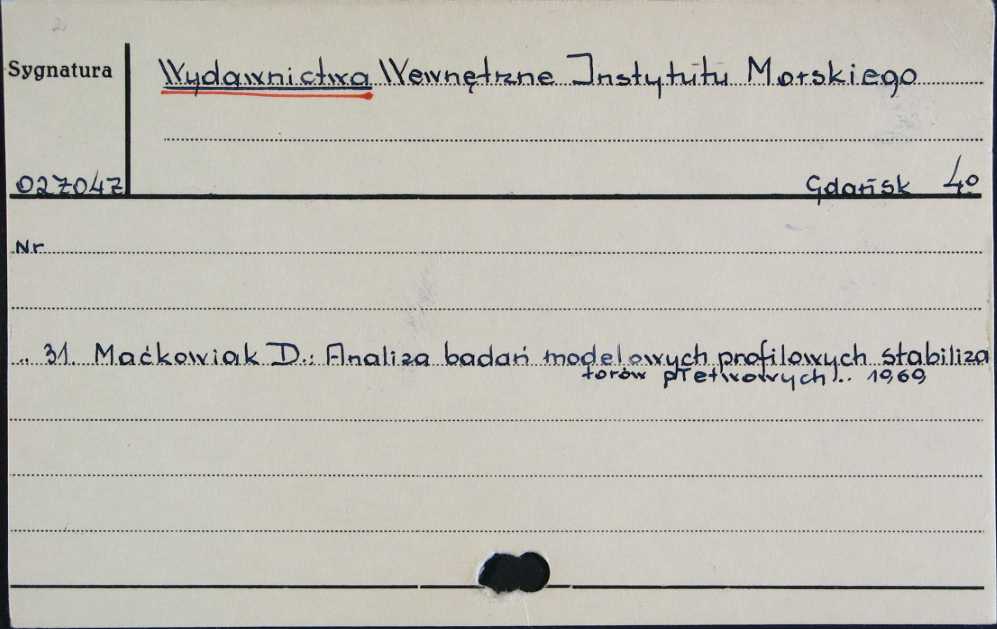 2
Sygnatura
Wydawnictwa Wewnętrzne Instytutu Morskiego
027047
Gdańsk 4º
Nr
.. 31. Maćkowiak D.: Analiza badań modelowych profilowych stabiliza
torów płetwowych.. 1969